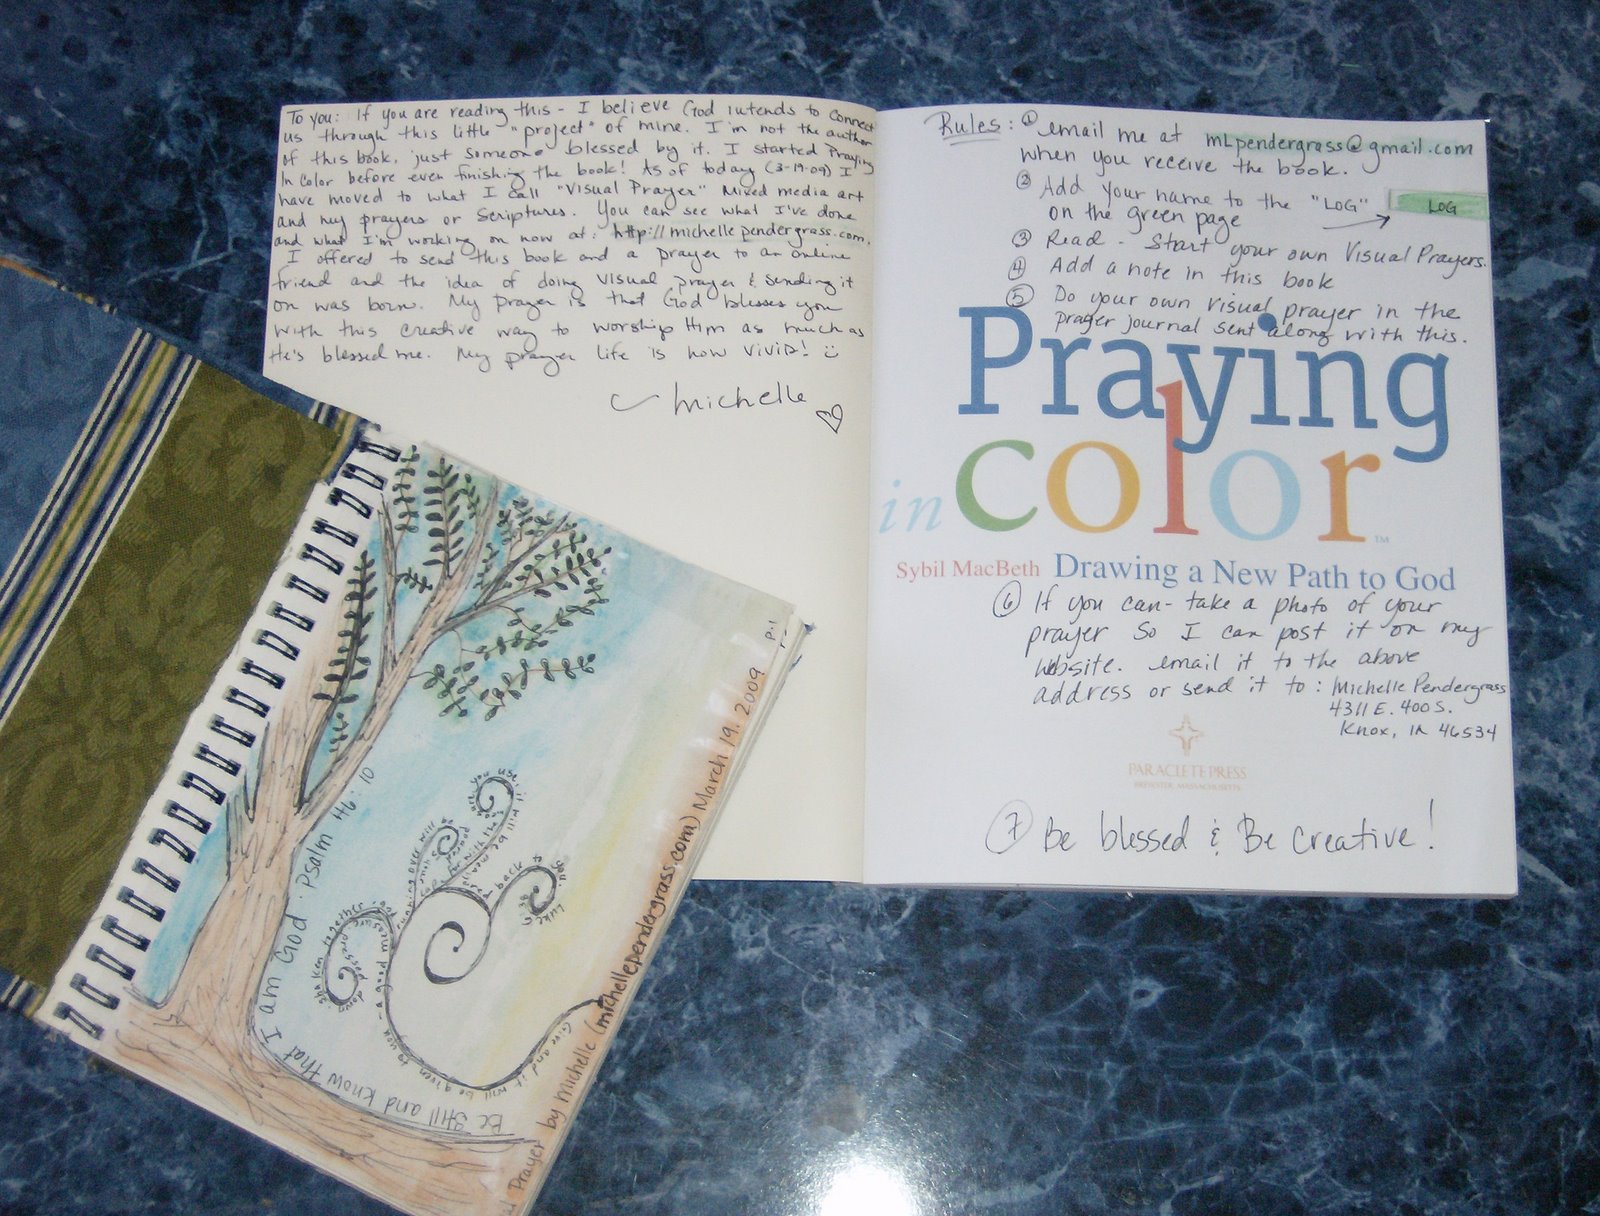 To you: If you are reading this - I believe God intends to connect
us through this little "project" of mine. I'm not the author
of this book, just someone blessed by it. I started Praying
In Color before even finishing the book! As of today (3-19-09) I
have moved to what I call "Visual Prayer" Mixed media art
and my prayers or Scriptures. You can see what I've done
and what I'm working on now at: http://michellependergrass.com.
I offered to send this book and a prayer to an online
friend and the idea of doing visual prayer & sending it
on was born. My prayer is that God blesses you
with this creative way to worship Him as much as
He's blessed me. My prayer life is now vivid!
michelle
Rules: ① email me at mLpendergrass@gmail.com
when you receive the book.
② Add your name to the "LOG"
on the green page
LOG
③ Read - Start your own Visual Prayers.
④ Add a note in this book
⑤ Do your own visual prayer in the
prayer journal sent along with this.
Praying
in color™
Sybil MacBeth Drawing a New Path to God
⑥ If you can - take a photo of your
prayer so I can post it on my
website. email it to the above
address or send it to: Michelle Pendergrass
4311 E. 400 S.
Knox, IN 46534
PARACLETE PRESS
BREWSTER, MASSACHUSETTS
⑦ Be blessed & Be creative!
Be still and know that I am God · Psalm 46:10
Give and it will be given to you - a good measure
pressed down
shaken together
running over will
be poured
you use it will be measured
back to you. Luke 6:38
Prayer by michelle (michellependergrass.com) March 19, 2009 p.1